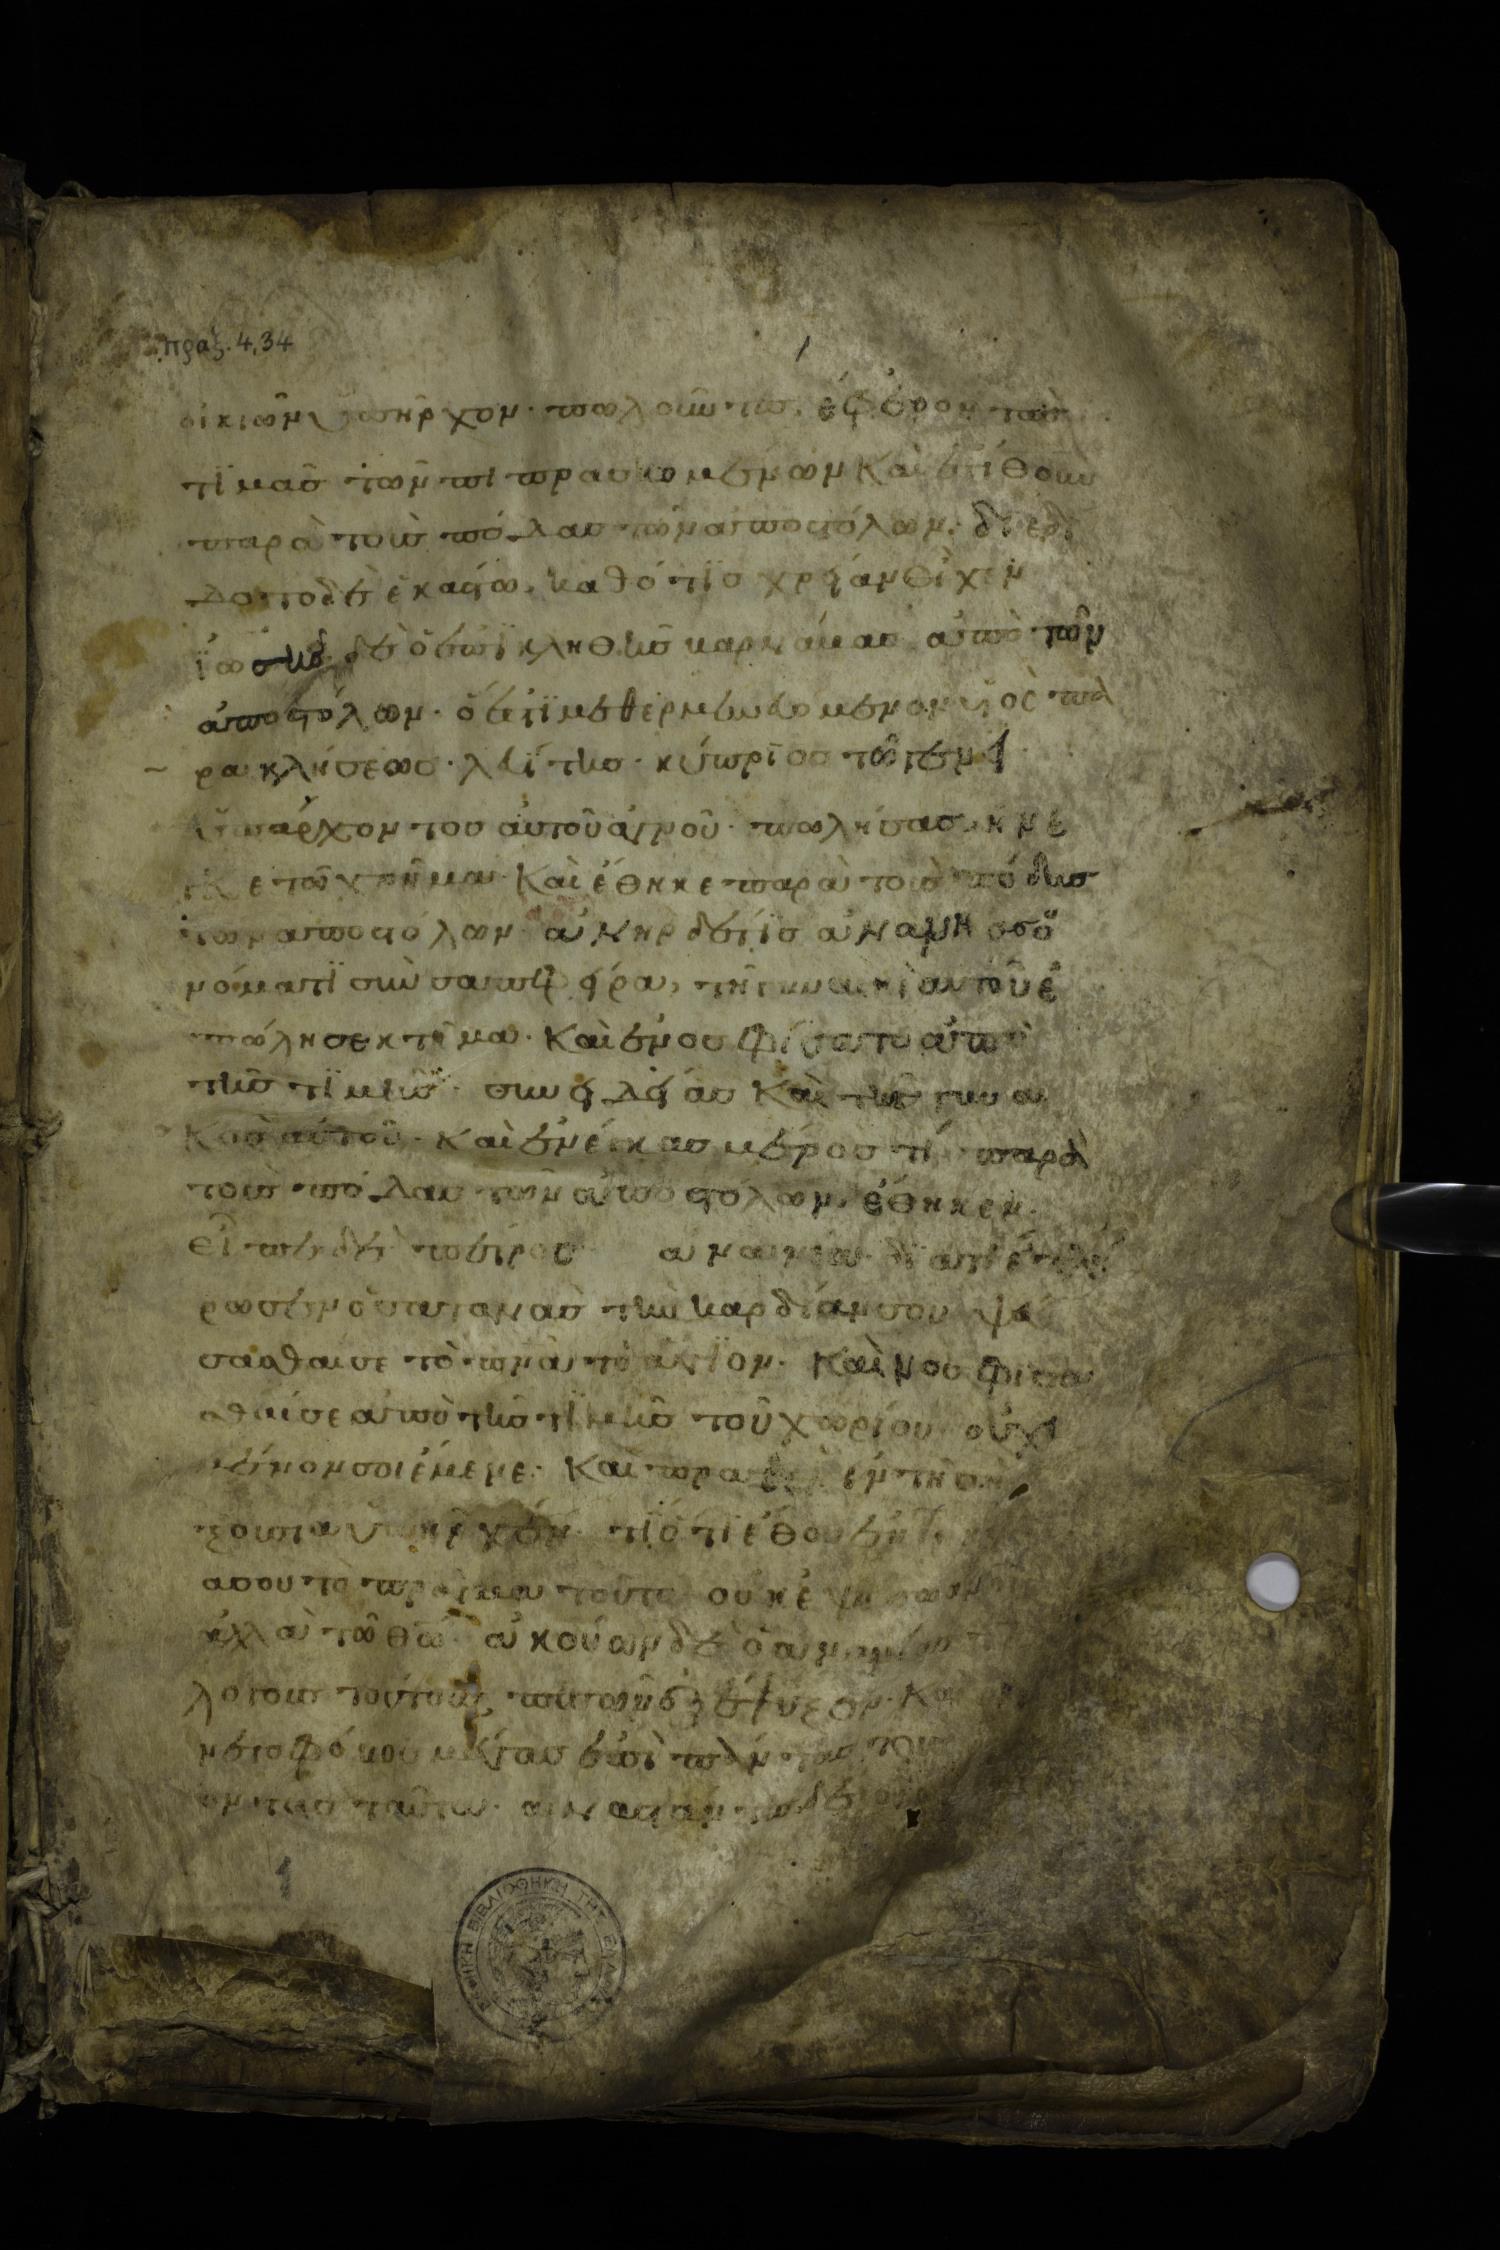 πραξ. 4,34
1
οἰκιῶν ὑπῆρχον· πωλοῦντες, ἔφερον τὰς
τϊμὰς τῶν πιπρασκομένων καὶ ἐτίθουν
παρὰ τοὺς πόδας τῶν ἀποστόλων· διεδί
δοτο δὲ ἑκάστω, καθότϊ ἄν τϊς χρείαν εἶχεν
ϊωσὴς δὲ ὁ ἐπϊκληθεὶς βαρνάβας ἀπὸ τῶν
ἀποστόλων· ὅ ἐστϊ μεθερμηνευόμενον υἱὸς πα
ρακλήσεως· λευΐτης· κύπρϊος τῶ γένει
ὑπάρχοντος αὐτοῦ ἀγροῦ· πωλήσας ἤνε
γκε τὸ χρῆμα· καὶ ἔθηκε παρὰ τοὺς πόδας
τῶν ἀποστόλων· ἀνὴρ δέ τϊς ἀνανίας ὀ
νόματϊ σὺν σαπφείρα, τῆ γυναικὶ αὐτοῦ ἐ
πώλησε κτῆμα· καὶ ἐνοσφίσατο ἀπὸ
τῆς τϊμῆς· συνειδείας καὶ τῆς γυναι
κὸς αὐτοῦ· καὶ ἐνέγκας μέρος τϊ παρὰ
τοὺς πόδας τῶν ἀποστόλων, ἔθηκεν.
Εἶπε δὲ πέτρος ἀνανία· δϊατί ἐπλή
ρωσεν ὁ σατανᾶς τὴν καρδίαν σου ψεύ
σασθαί σε τὸ πνα τὸ ἅγϊον· καὶ νοσφίσα
σθαί σε ἀπὸ τῆς τϊμῆς τοῦ χωρίου οὐχὶ
μένον σοι ἔμενε· καὶ πραθὲν ἐν τῆ σῆ
ἐξουσία ὑπῆρχεν· τϊ ὅτϊ ἔθου ἐν τῆ
σου τὸ πρᾶγμα τοῦτο οὐκ ἐψεύσω
ἀλλὰ τῶ θω· ἀκούων δὲ ὁ ἀνανίας
λόγους τούτους πεσὼν ἐξέψυξεν· Καὶ
νετο φόβος μέγας ἐπὶ πάντας τοὺς
οντας ταῦτα· ἀναστάντες δὲ οἱ
ΕΘΝΙΚΗ ΒΙΒΛΙΟΘΗΚΗ ΤΗΣ ΕΛΛΑΔΟΣ